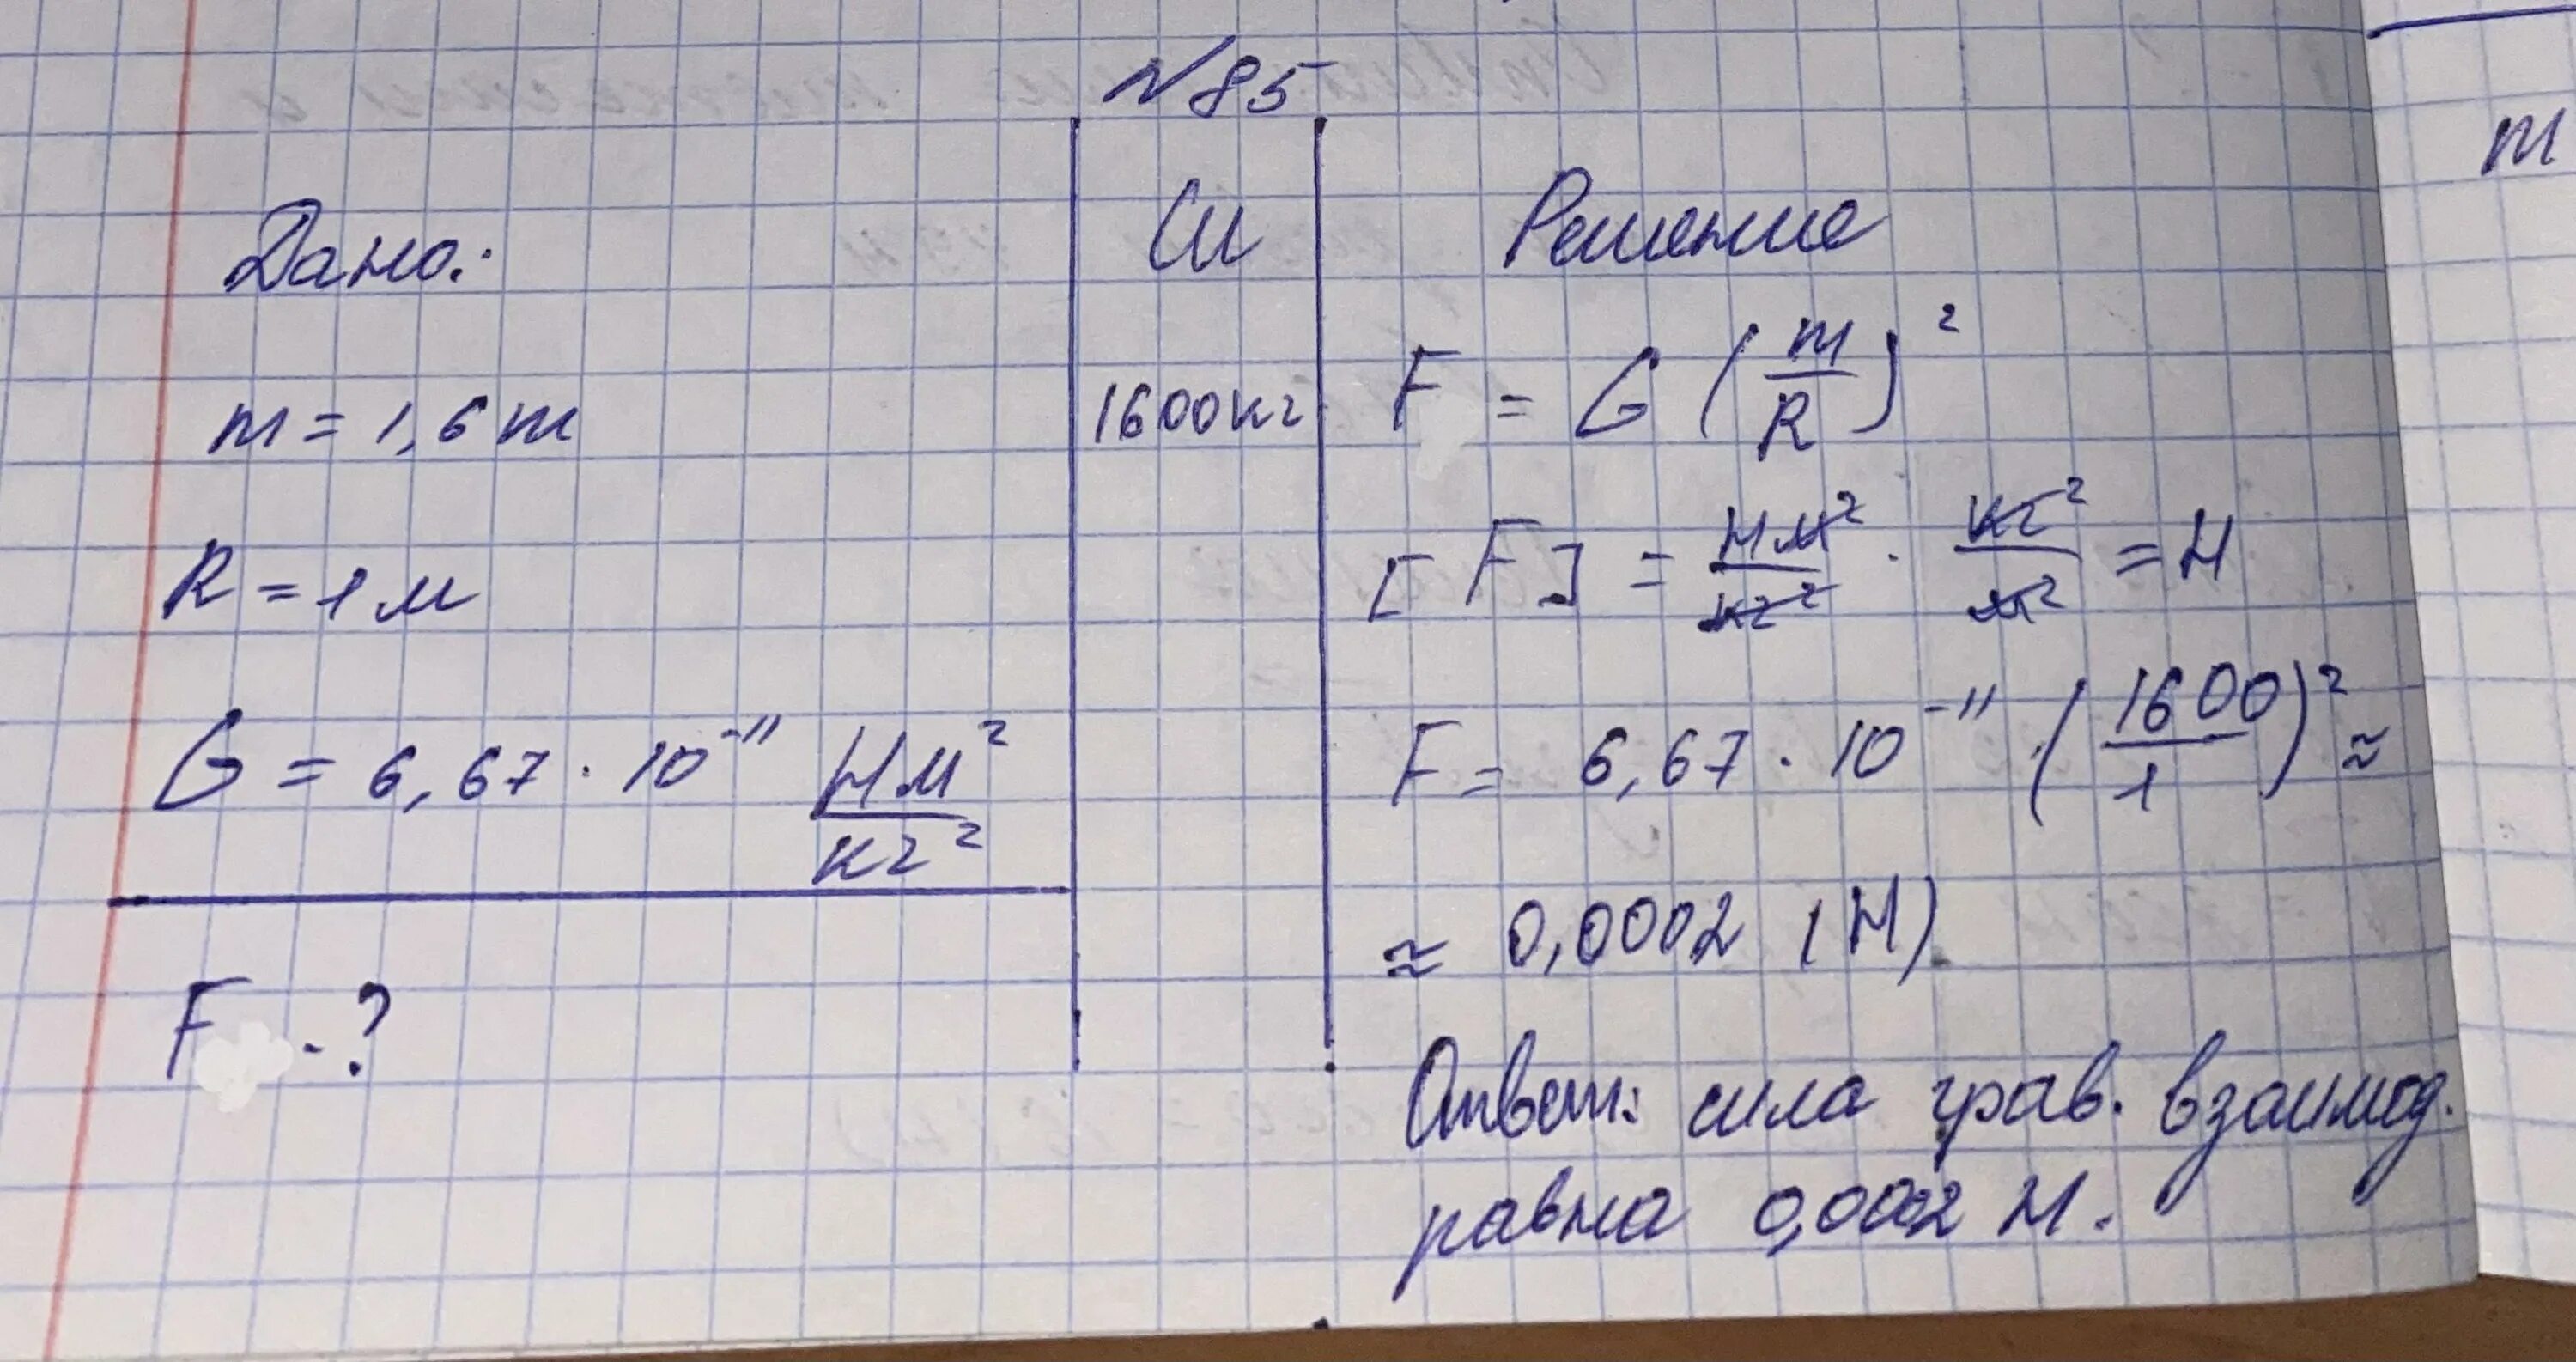 №85
Дано:
m = 1,6 т
R = 1 м
G = 6,67 · 10⁻¹¹ Нм²/кг²
F - ?
СИ
1600кг
Решение
F = G (m/R)²
[F] = Нм²/кг² · кг²/м² = Н
F = 6,67 · 10⁻¹¹ · (1600/1)² ≈
≈ 0,0002 (Н)
Ответ: сила грав. взаимод.
равна 0,0002 Н.
m